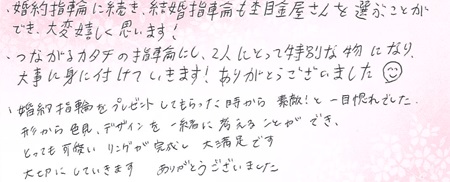 ・婚約指輪に続き、結婚指輪も杢目金屋さんを選ぶことが
でき、大変嬉しく思います!
・つながるカタチの指輪にし、2人にとって特別な物になり、
大事に身に付けていきます!ありがとうございました☺
・婚約指輪をプレゼントしてもらった時から 素敵!と一目惚れでした。
形から色見、デザインを一緒に考えることができ、
とっても可愛いリングが完成し 大満足です
大切にしていきます ありがとうございました